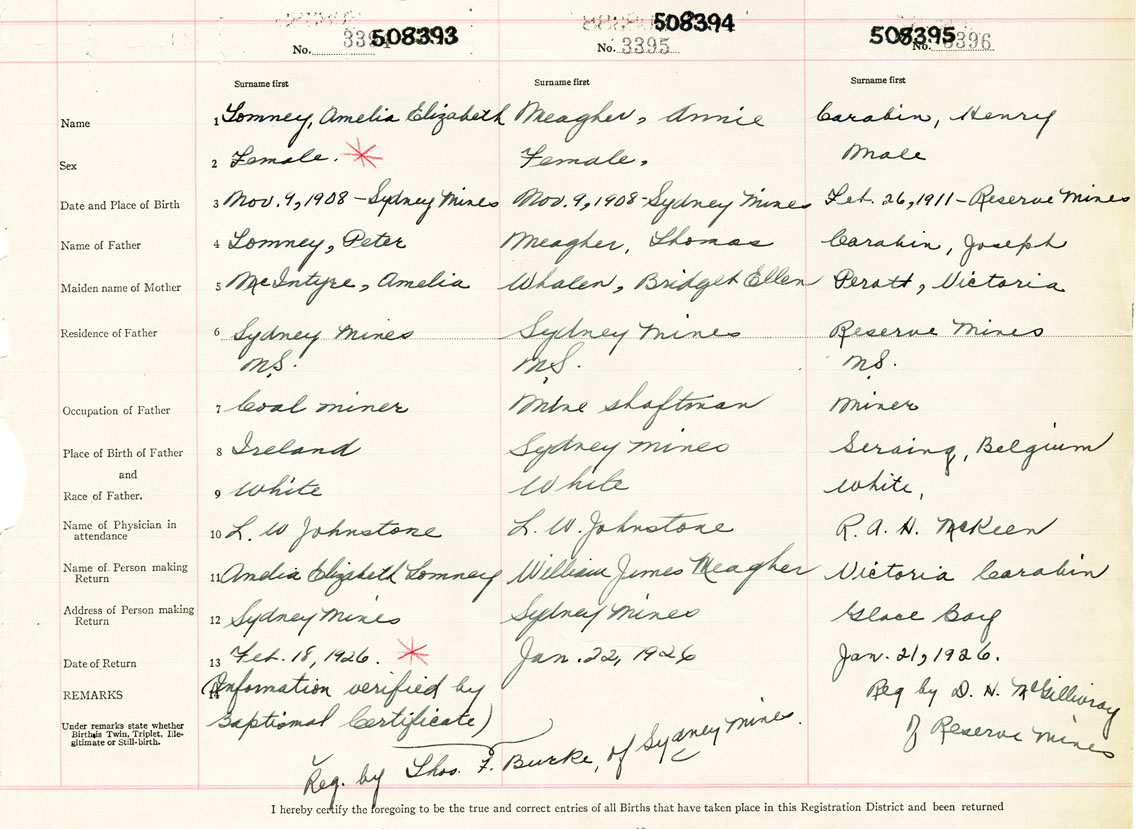 508393 508394 508395
No. 3394 No. 3395 No. 3396
Surname first Surname first Surname first
Name 1 Lomney, Amelia Elizabeth Meagher, Annie Carabin, Henry
Sex 2 Female. Female, Male
Date and Place of Birth 3 Nov. 9, 1908 - Sydney Mines Nov. 9, 1908 - Sydney Mines Feb. 26, 1911 - Reserve Mines
Name of Father 4 Lomney, Peter Meagher, Thomas Carabin, Joseph
Maiden name of Mother 5 McIntyre, Amelia Whalen, Bridget Ellen Peratt, Victoria
Residence of Father 6 Sydney Mines Sydney Mines Reserve Mines
N.S. N.S. N.S.
Occupation of Father 7 Coal miner Mine shaftman Miner
Place of Birth of Father 8 Ireland Sydney Mines Seraing, Belgium
and
Race of Father. 9 White White White,
Name of Physician in
attendance 10 L. W. Johnstone L. W. Johnstone R. A. H. McKeen
Name of Person making
Return 11 Amelia Elizabeth Lomney William James Meagher Victoria Carabin
Address of Person making
Return 12 Sydney Mines Sydney Mines Glace Bay
Date of Return 13 Feb. 18, 1926. Jan. 22, 1926 Jan. 21, 1926.
REMARKS 14 (Information verified by Reg by D. H. McGillivray
Baptismal Certificate) of Reserve Mines
Under remarks state whether
Birth is Twin, Triplet, Ille-
gitimate or Still-birth.
Reg. by Thos. F. Burke, of Sydney Mines.
I hereby certify the foregoing to be the true and correct entries of all Births that have taken place in this Registration District and been returned